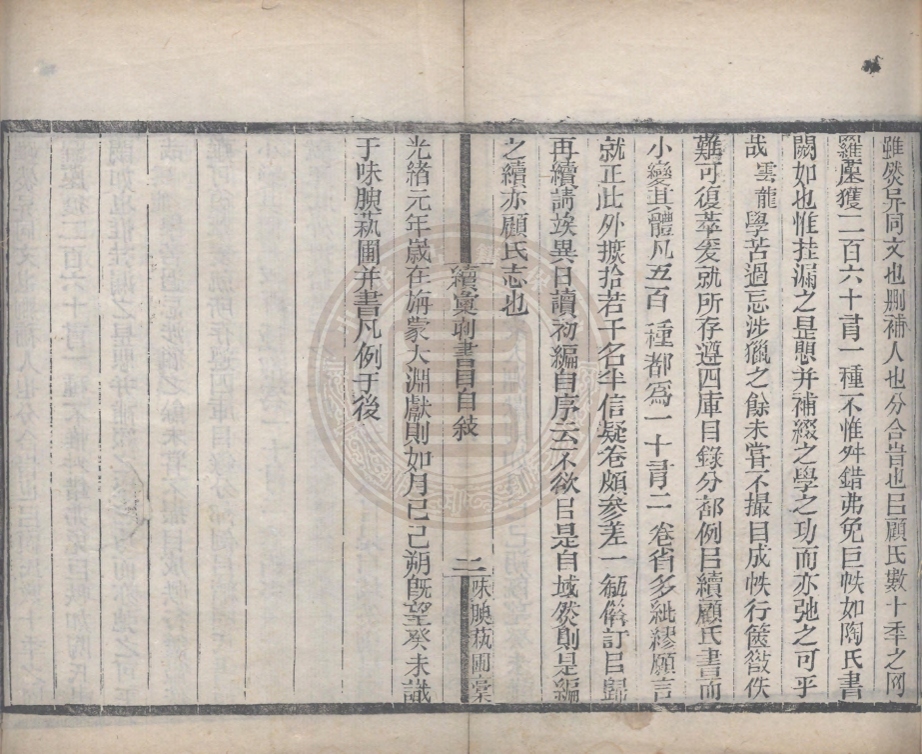 雖然异同文也删補人也分合峕也㠯顧氏數十季之网
羅廑獲二百六十𦳝一種不惟舛錯弗免巨帙如陶氏書
闕如也惟挂漏之是思并補綴之學之功而亦弛之可乎
哉　雲龍學苦過忘涉獵之餘未嘗不撮目成帙行篋散佚
難可復萃爰就所存遵四庫目錄分部例㠯續顧氏書而
小變其體凡五百　種都爲一十𦳝二　卷省多紕繆願言
就正此外摭拾若干名半信疑卷頗參差一瓻僃訂㠯歸
再續請竢異日讀初編自序云不欲㠯是自域然則是編
之續亦顧氏志也
續彙刻書目自敍　二　味腴蓺圃稾
光緒元年歲在旃蒙大淵獻則如月已己朔旣望癸未識
于味腴蓺圃并書凡例于後